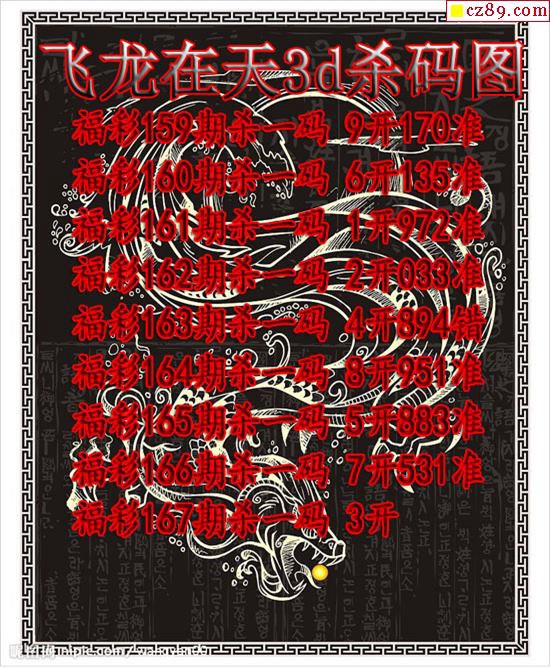 cz89.com
飞龙在天3d杀码图
福彩159期杀一码 9开170准
福彩160期杀一码 6开135准
福彩161期杀一码 1开972准
福彩162期杀一码 2开033准
福彩163期杀一码 4开894错
福彩164期杀一码 8开951准
福彩165期杀一码 5开883准
福彩166期杀一码 7开531准
福彩167期杀一码 3开